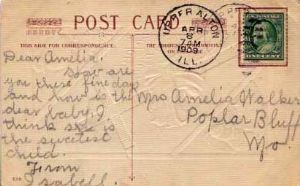 POST CARD
THIS SIDE FOR CORRESPONDENCE.
UPPER ALTON
APR
8
1909
ILL.
Dear Amelia:
How are
you these fine days
and how is the
dear baby. I
think she is
the sweetest
child.
From
Isabell
Mrs Amelia Walker
Poplar Bluff
Mo.